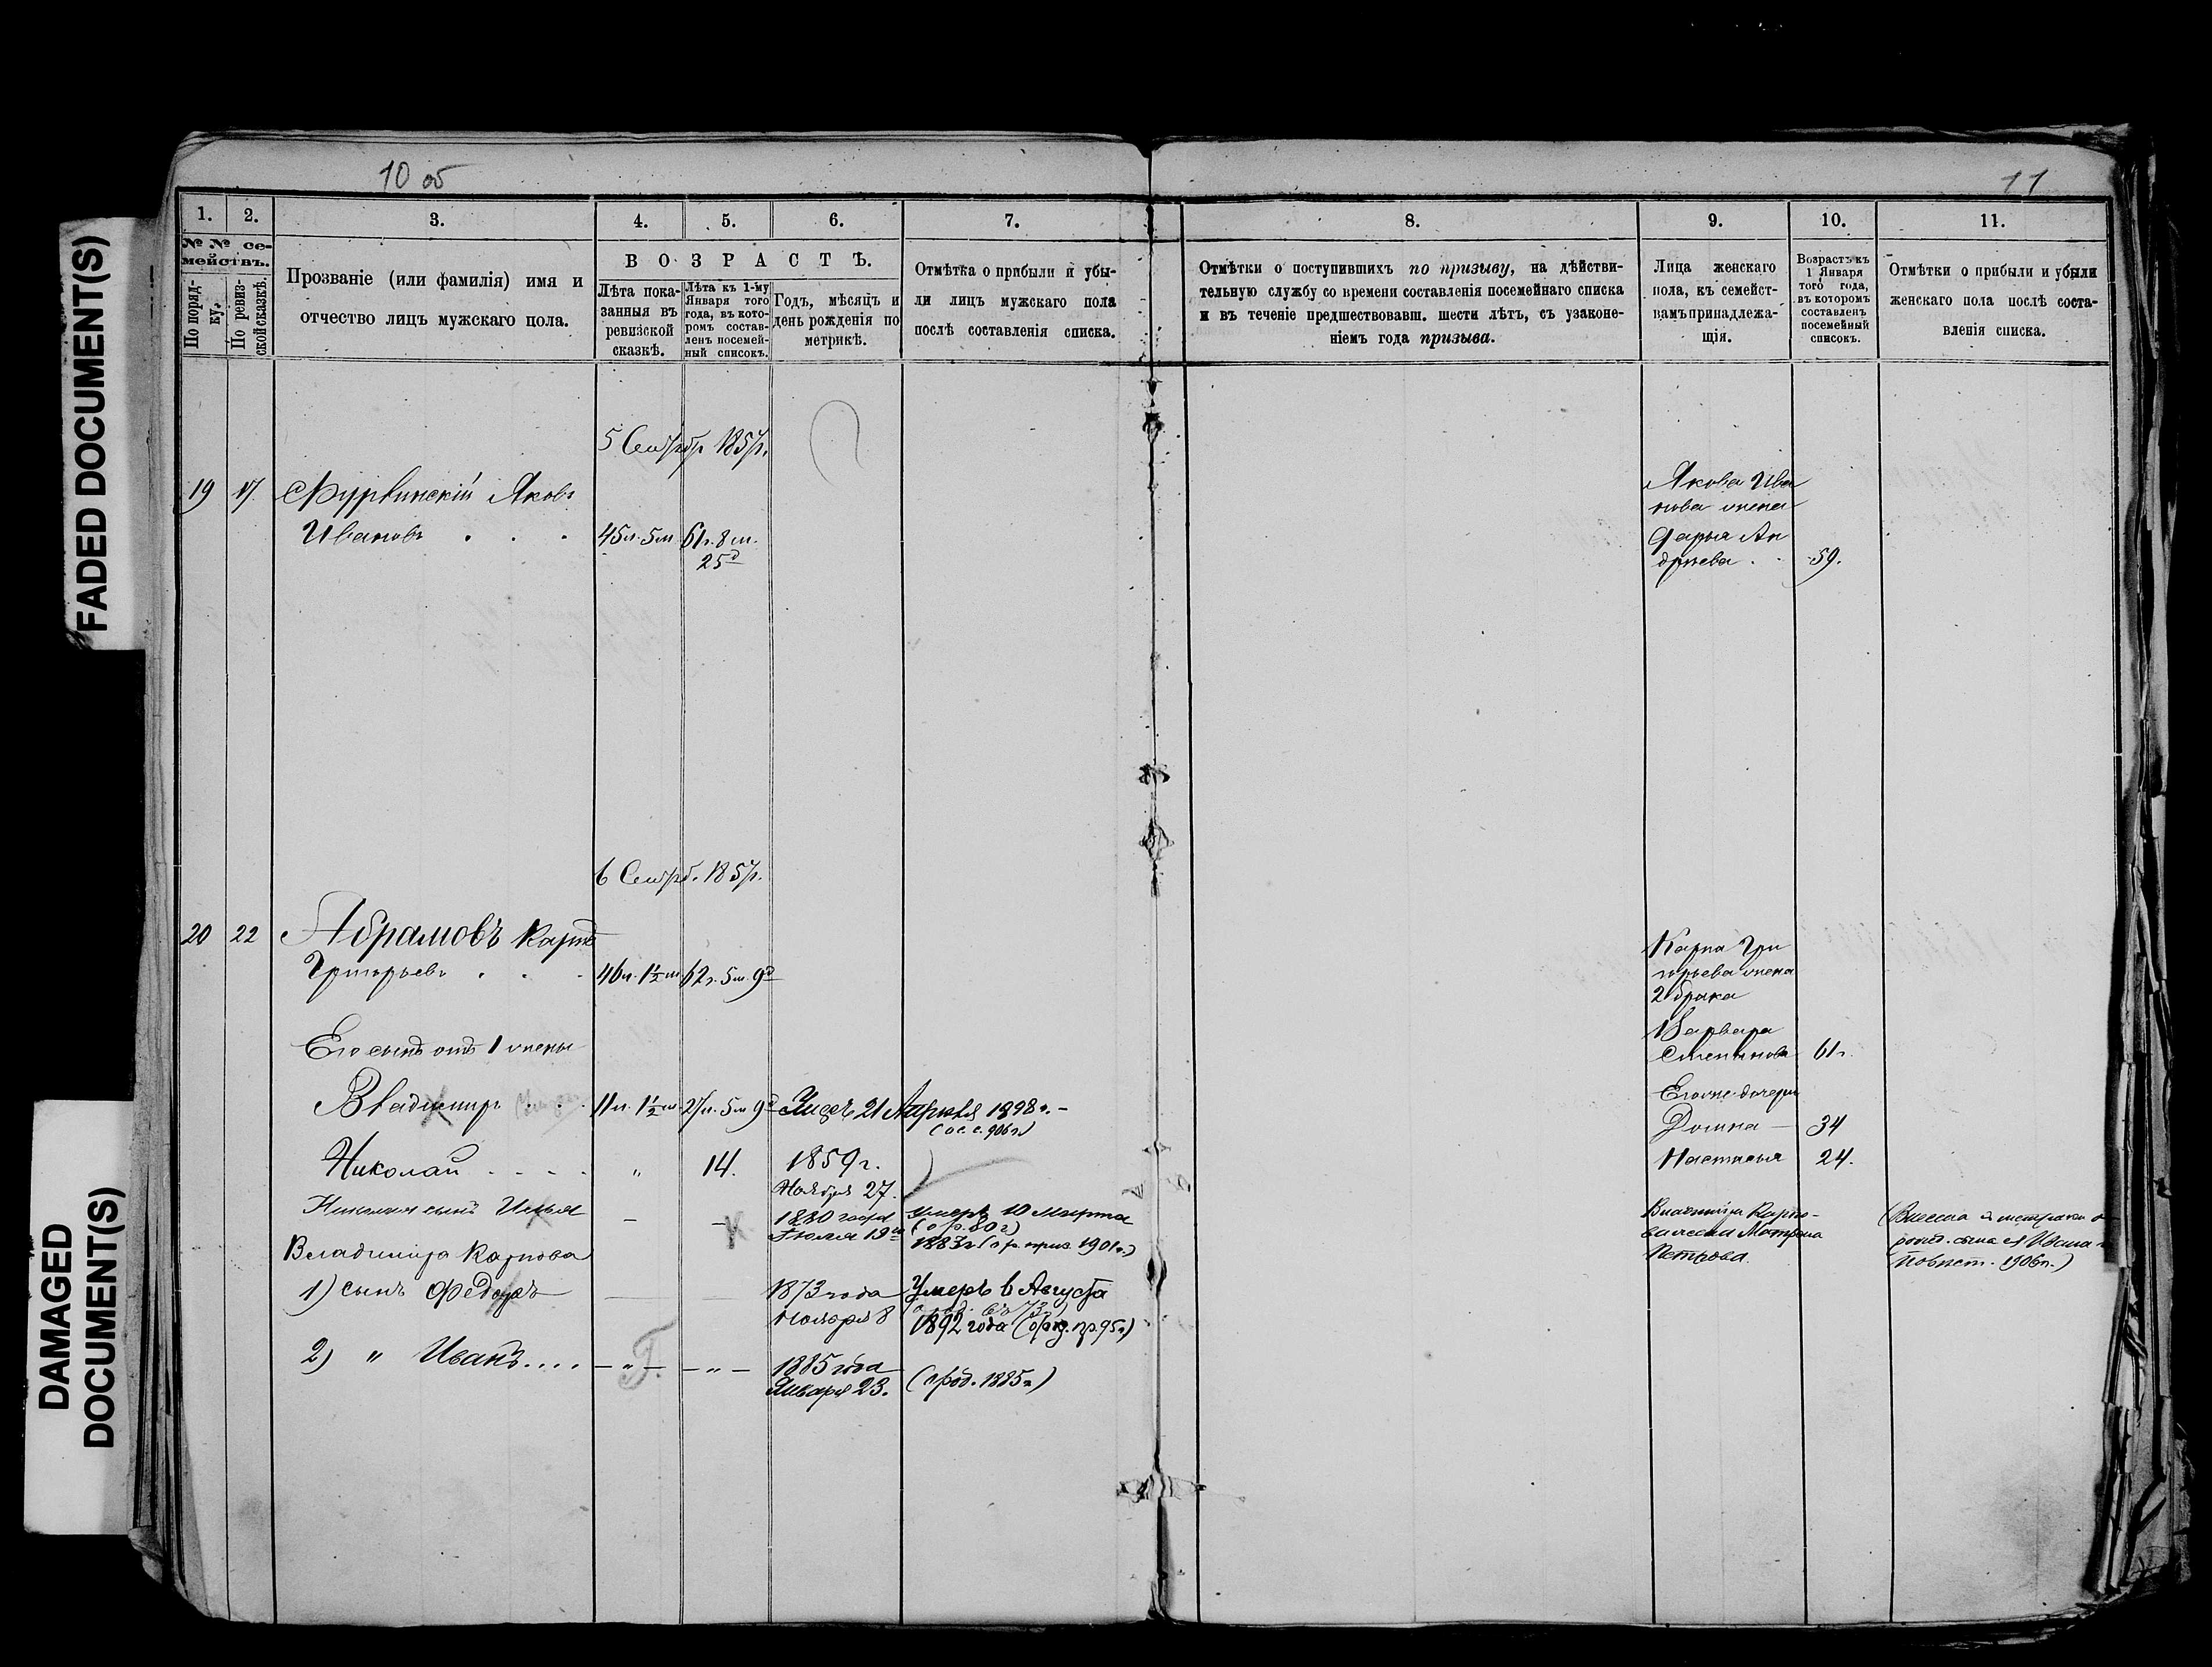 10 об
11
FADED DOCUMENT(S)
DAMAGED
DOCUMENT(S)
1.
2.
3.
4.
5.
6.
7.
8.
9.
10.
11.
№ № се-
мействъ.
По поряд-
ку.
По ревиз-
ской сказкѣ.
Прозваніе (или фамилія) имя и
отчество лицъ мужскаго пола.
ВОЗРАСТЪ.
Лѣта пока-
занныя въ
ревизской
сказкѣ.
Лѣта къ 1-му
Января того
года, въ кото-
ромъ состав-
ленъ посемей-
ный списокъ.
Годъ, мѣсяцъ и
день рожденія по
метрикѣ.
Отмѣтка о прибыли и убы-
ли лицъ мужскаго пола
послѣ составленія списка.
Отмѣтки о поступившихъ по призыву, на дѣйстви-
тельную службу со времени составленія посемейнаго списка
и въ теченіе предшествовавш. шести лѣтъ, съ узаконе-
ніемъ года призыва.
Лица женскаго
пола, къ семейст-
вамъ принадлежа-
щія.
Возрастъ къ
1 Января
того года,
въ которомъ
составленъ
посемейный
списокъ.
Отмѣтки о прибыли и убыли
женскаго пола послѣ соста-
вленія списка.
5 1857г.
19 17. Яковъ
Ивановъ . . . 45л. 5м. 61г. 8м.
25д
Якова Ива
нова жена
Дарья Ан
дреева . 59.
6 1857г.
20 22 Абрамовъ Карпъ
Григорьевъ . . . 46л. 1½м 62г. 5м. 9д
Карпа Гри
горьева жена
2 брака
Варвара
Степанова 61г.
Его сынъ отъ 1 жены
Владимиръ 11л. 1½м 27л. 5м 9д 21 Апрѣля 1898г. -
Его же дочери
Домна - 34
Николай . . . . " 14. 1859г.
Ноября 27.
Настасья 24.
Николая сынъ Илья - - 1880 года
Іюля 19го
умеръ 10 Марта
(о р. 80г)
1883г (о р. приз. 1901г.)
Владиміра Карпо-
Матрена
Петрова.
(Внесена метрики о
рожд. сына Ивана
1906г.)
Владиміра Карпова
1) сынъ Федоръ 1873 года
Ноября 8
Умеръ 6 Августа
1892 года
2) " Иванъ.... - " - - " - 1885 года
Января 23.
(о род. 1885г)